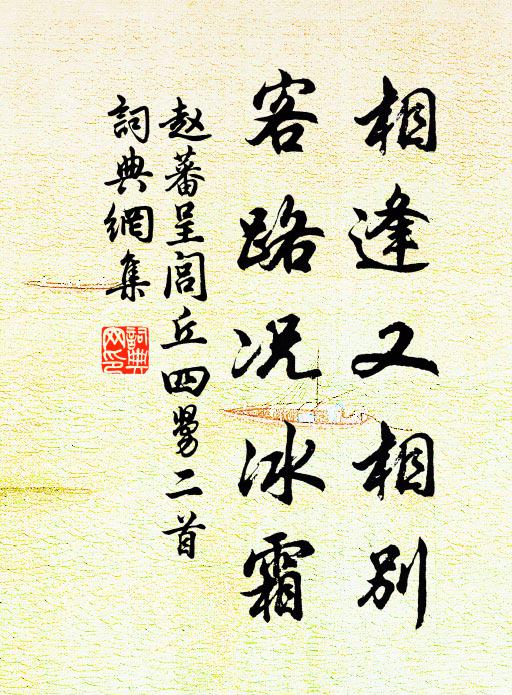 相逢又相别
客路况冰霜
赵蕃呈闾丘四舅二首
詞典網集
詞典
网印